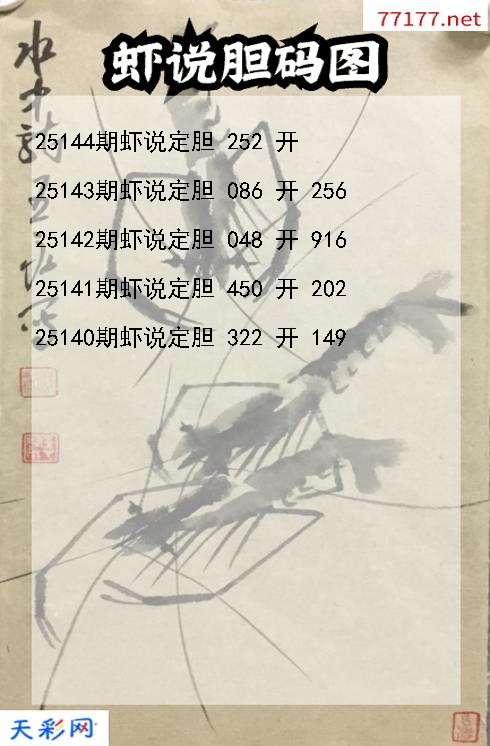 77177.net
虾说胆码图
25144期虾说定胆 252 开
25143期虾说定胆 086 开 256
25142期虾说定胆 048 开 916
25141期虾说定胆 450 开 202
25140期虾说定胆 322 开 149
天彩网